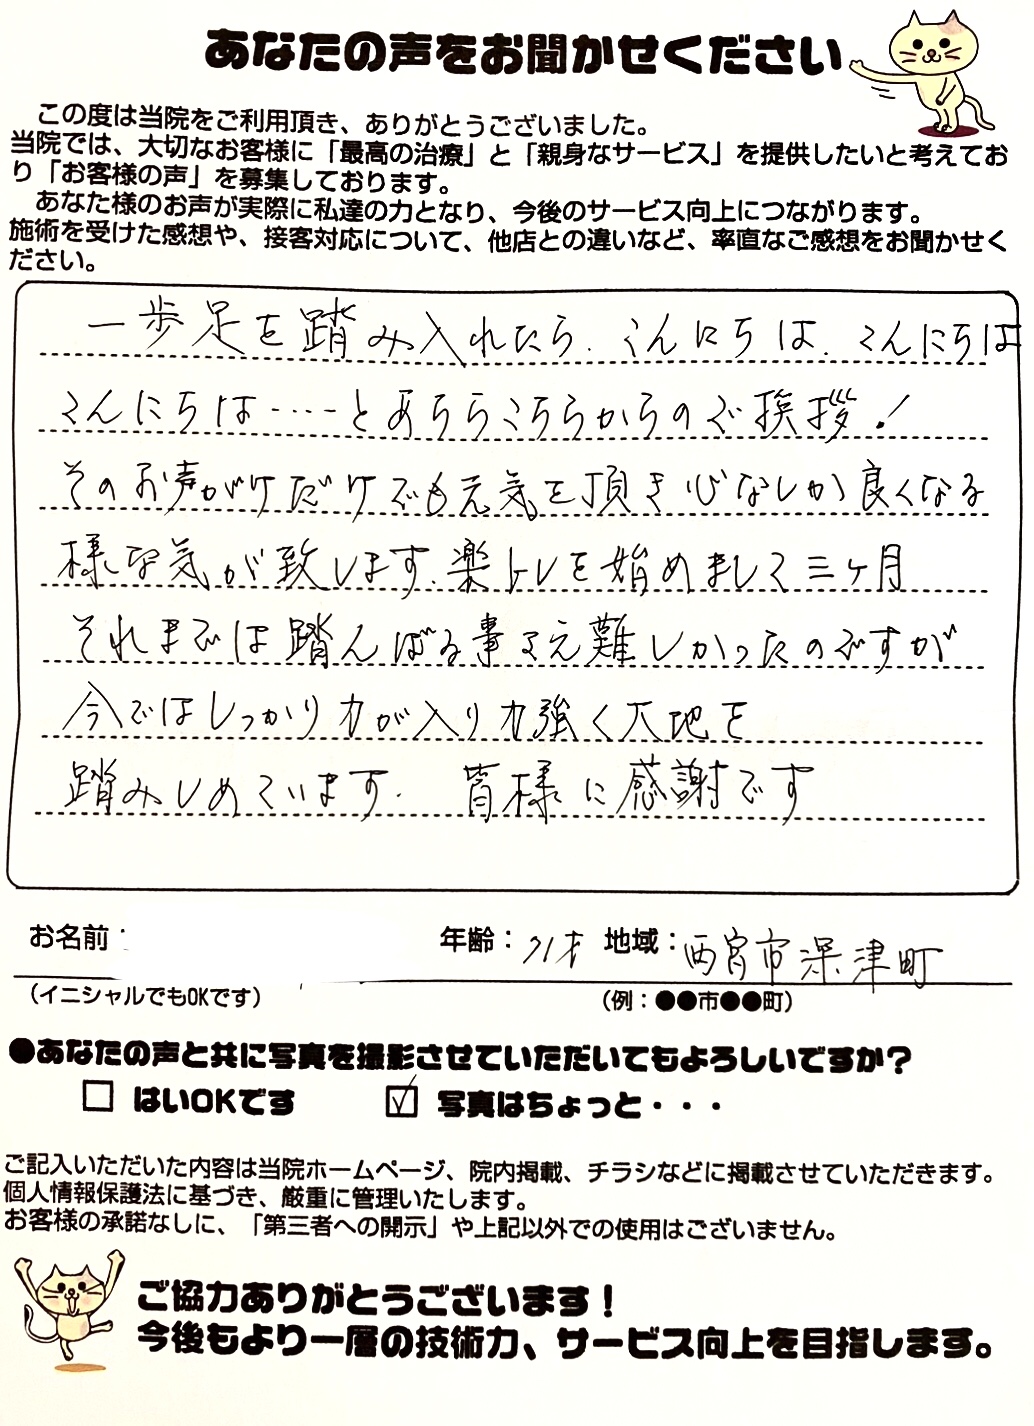 あなたの声をお聞かせください
この度は当院をご利用頂き、ありがとうございました。
当院では、大切なお客様に「最高の治療」と「親身なサービス」を提供したいと考えてお
り「お客様の声」を募集しております。
あなた様のお声が実際に私達の力となり、今後のサービス向上につながります。
施術を受けた感想や、接客対応について、他店との違いなど、率直なご感想をお聞かせく
ださい。
一歩足を踏み入れたら、こんにちは、こんにちは
こんにちは‥‥とあちらこちらからのご挨拶!
そのお声がけだけでも元気を頂き心なしか良くなる
様な気が致します、楽トレを始めまして三ヶ月
それまでは踏んばる事さえ難しかったのですが
今ではしっかり力が入り力強く大地を
踏みしめています. 皆様に感謝です
お名前: 年齢: 71才 地域: 西宮市深津町
(イニシャルでもOKです) (例:●●市●●町)
●あなたの声と共に写真を撮影させていただいてもよろしいですか?
□ はいOKです ☑ 写真はちょっと・・・
ご記入いただいた内容は当院ホームページ、院内掲載、チラシなどに掲載させていただきます。
個人情報保護法に基づき、厳重に管理いたします。
お客様の承諾なしに、「第三者への開示」や上記以外での使用はございません。
ご協力ありがとうございます!
今後もより一層の技術力、サービス向上を目指します。